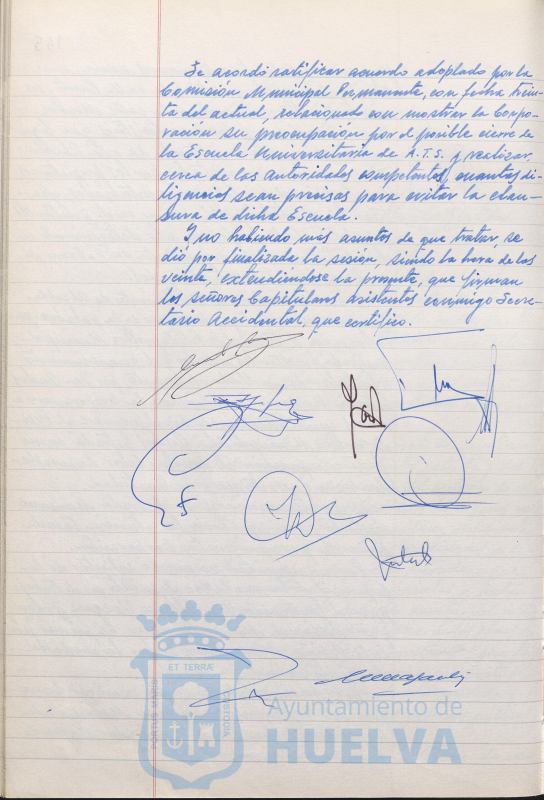 Se acordó ratificar acuerdo adoptado por la
Comisión Municipal Permanente, con fecha trein-
ta del actual, relacionado con mostrar la Corpo-
ración su preocupación por el posible cierre de
la Escuela Universitaria de A.T.S. y realizar
cerca de las autoridades competentes, cuantas di-
ligencias sean precisas para evitar la clau-
sura de dicha Escuela.
Y no habiendo más asuntos de que tratar, se
dió por finalizada la sesión, siendo la hora de las
veinte, extendiéndose la presente, que firman
los señores Capitulares Asistentes conmigo Secre-
tario Accidental, que certifico.
ET TERRÆ
PORTUS MARIS
CUSTODIA
Ayuntamiento de
HUELVA